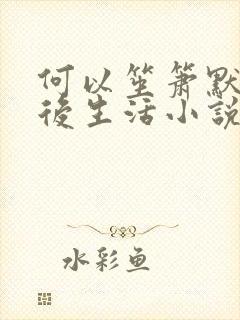 何以笙箫默
後生活小説
水彩鱼